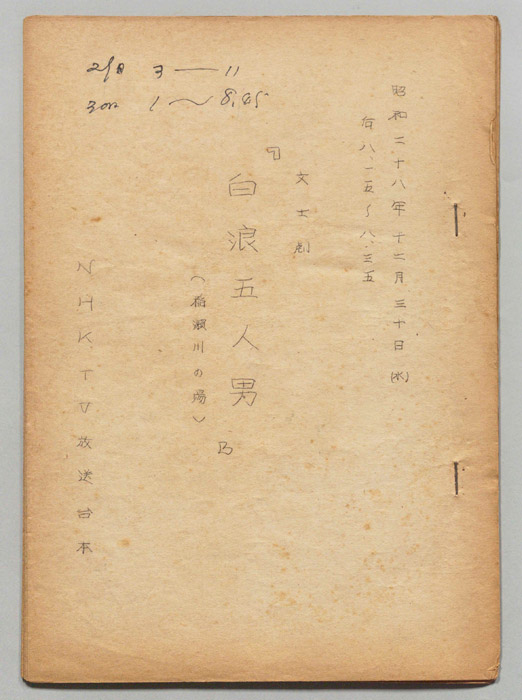 29日 3 ― 11
30日 1 〜 8,45
昭和二十八年十二月三十日(水)
后八、一五〜八、三五
文士劇
『白浪五人男』
(稲瀬川の場)
NHKTV放送台本